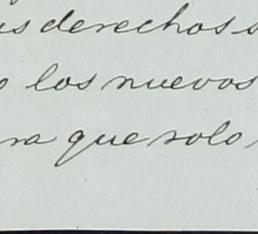 us derechos s
o los nuevos
ra que solo